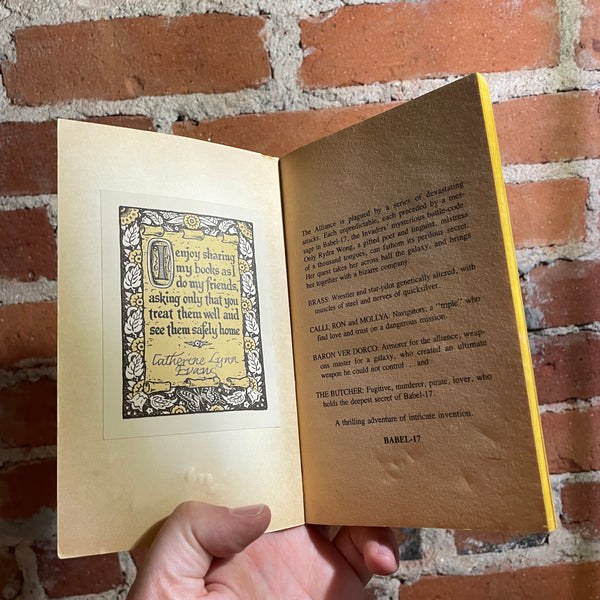 I enjoy sharing
my books as I
do my friends,
asking only that you
treat them well and
see them safely home
Catherine Lynn
Evans
The Alliance is plagued by a series of devastating
attacks. Each unpredictable, each preceded by a mes-
sage in Babel-17, the Invaders' mysterious battle-code
Only Rydra Wong, a gifted poet and linguist, mistress
of a thousand tongues, can fathom its perilous secret.
Her quest takes her across half the galaxy, and brings
her together with a bizarre company:
BRASS: Wrestler and star-pilot genetically altered, with
muscles of steel and nerves of quicksilver.
CALLI, RON and MOLLYA: Navigators; a "triple" who
find love and trust on a dangerous mission.
BARON VER DORCO: Armorer for the alliance, weap-
ons master for a galaxy, who created an ultimate
weapon he could not control . . . and
THE BUTCHER: Fugitive, murderer, pirate, lover, who
holds the deepest secret of Babel-17.
A thrilling adventure of intricate invention.
BABEL-17